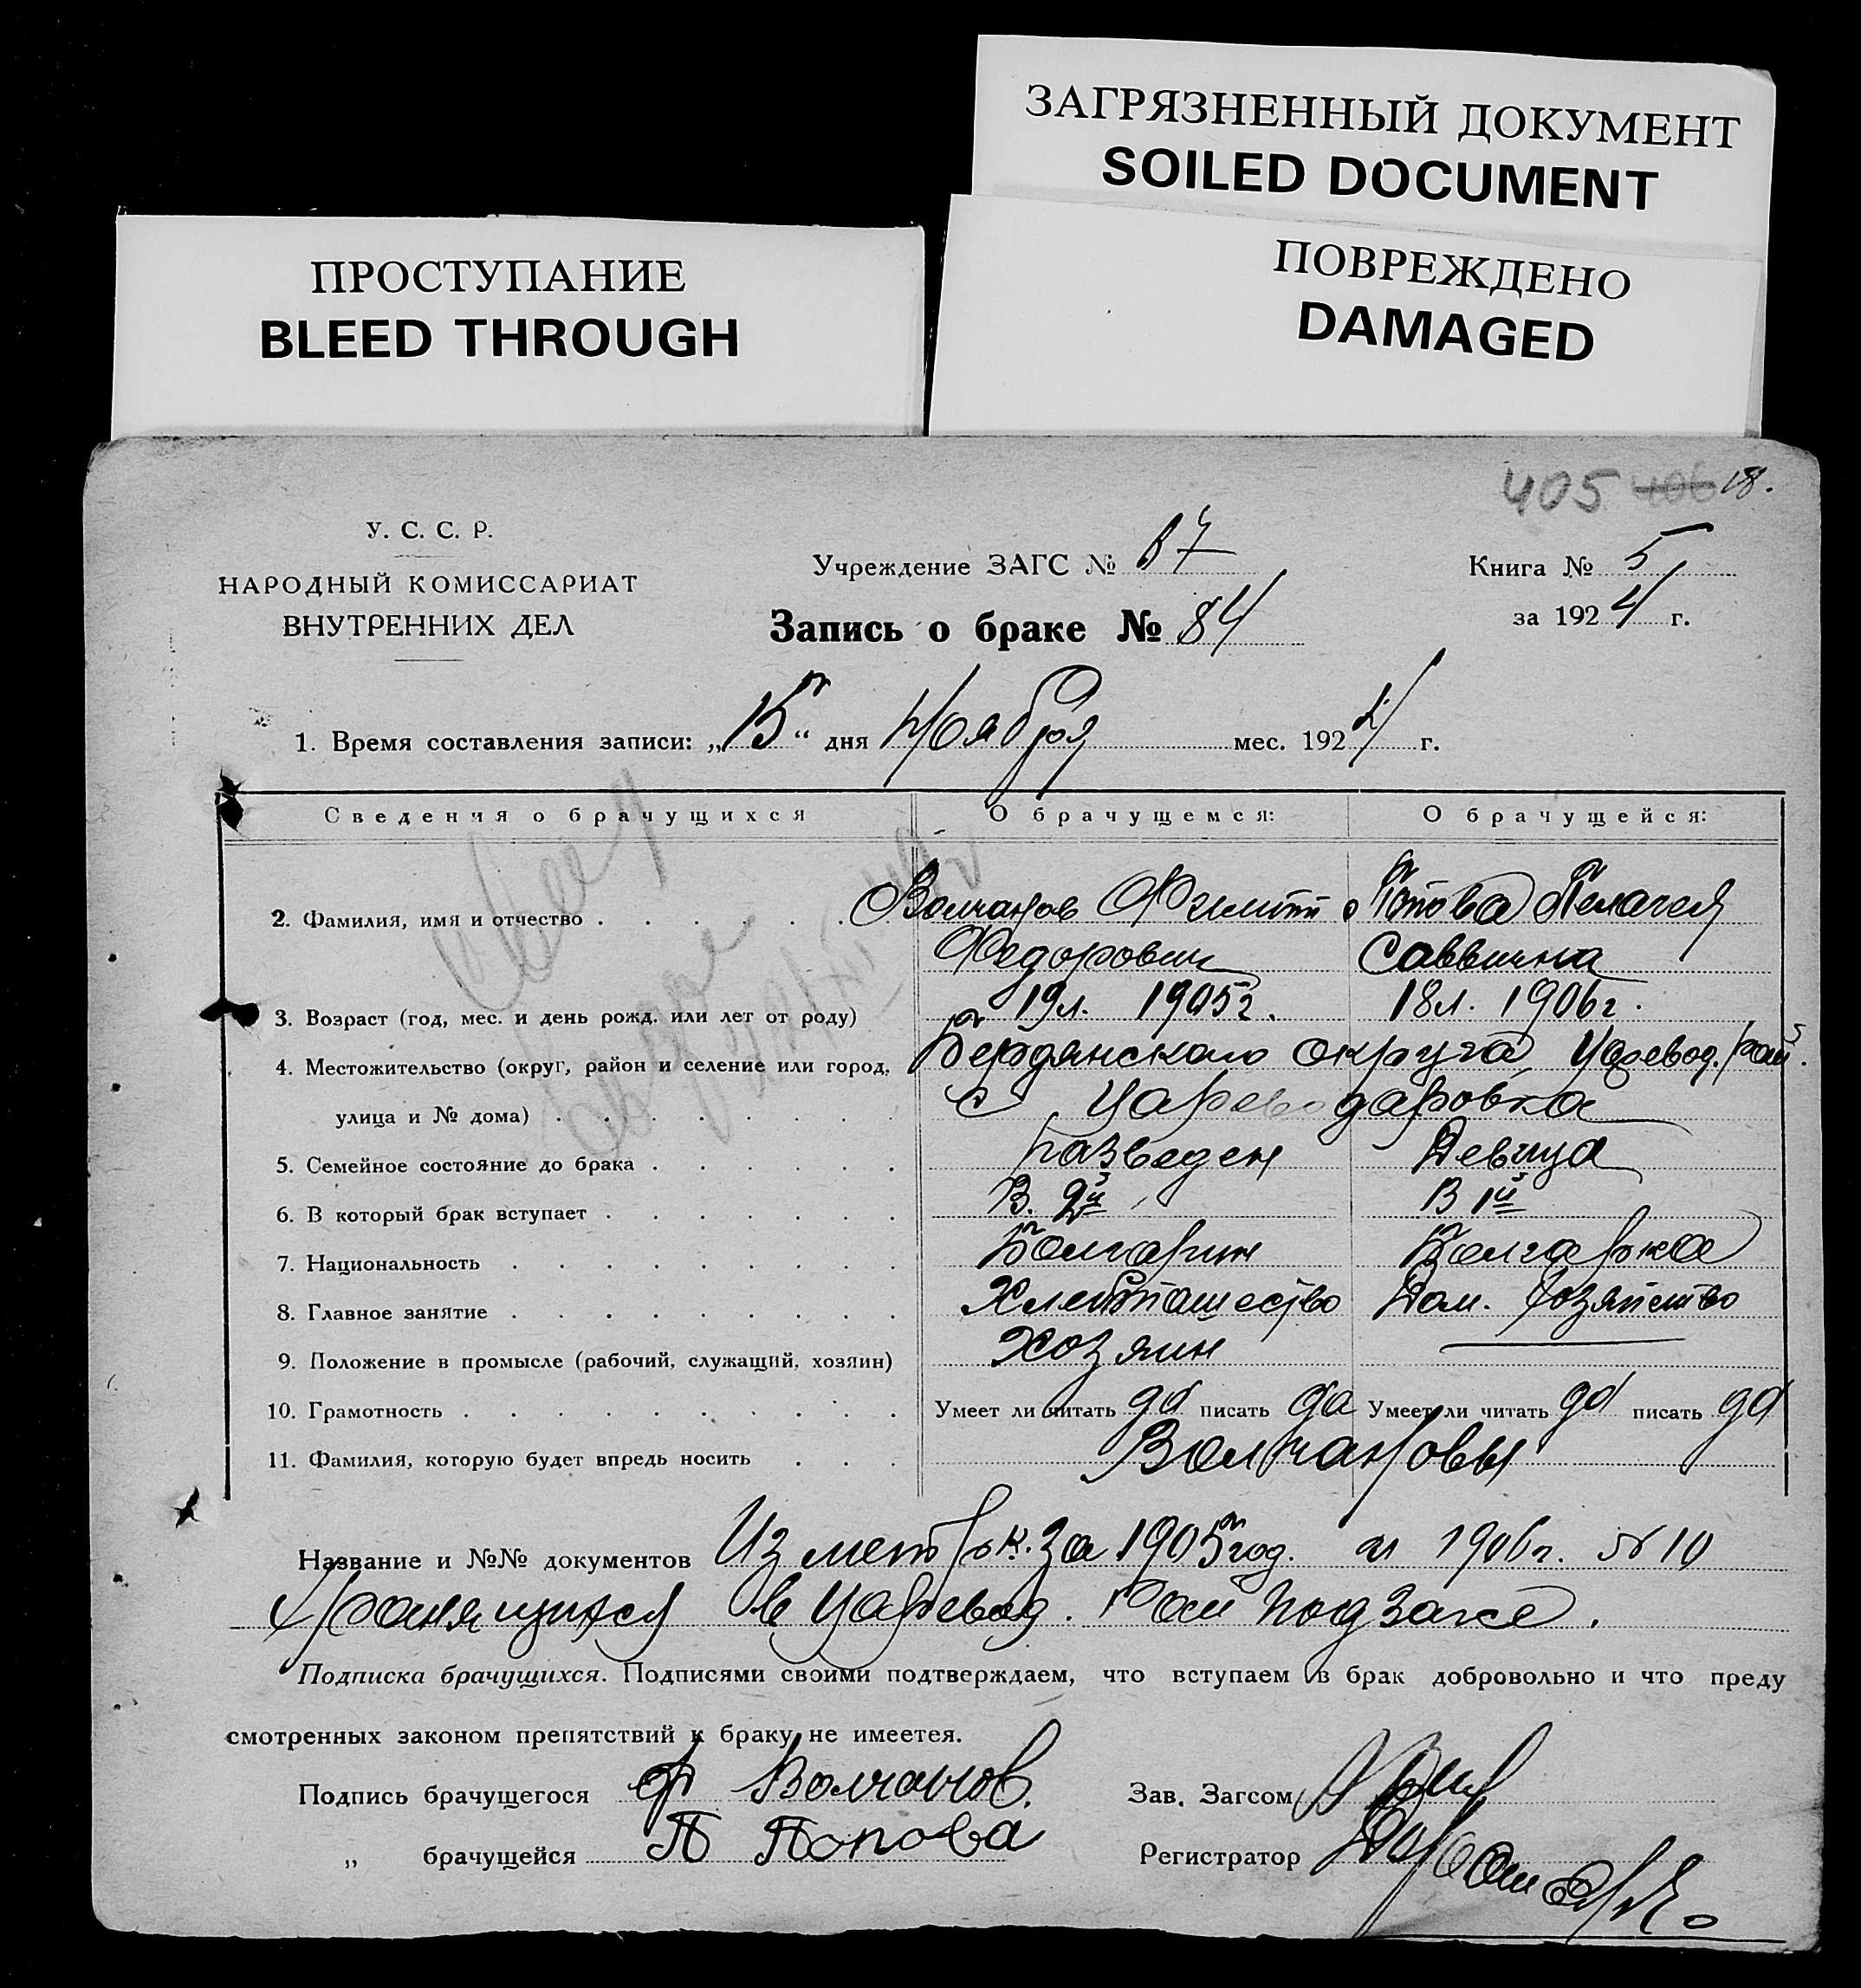 ЗАГРЯЗНЕННЫЙ ДОКУМЕНТ
SOILED DOCUMENT
ПРОСТУПАНИЕ
BLEED THROUGH
ПОВРЕЖДЕНО
DAMAGED
405 406 18.
У. С. С. Р.
НАРОДНЫЙ КОМИССАРИАТ
ВНУТРЕННИХ ДЕЛ
Учреждение ЗАГС №
Запись о браке № 84
Книга № 5
за 1924 г.
1. Время составления записи: „15“ дня Ноября мес. 1924 г.
Сведения о брачущихся О брачущемся: О брачущейся:
2. Фамилия, имя и отчество Волчанов Филипп Попова Пелагея
Федорович Саввична
3. Возраст (год, мес. и день рожд. или лет от роду) 19л. 1905г. 18л. 1906г.
4. Местожительство (округ, район и селение или город, Бердянского округа, Царевод. рай.
улица и № дома) с. Цареводаровка
5. Семейное состояние до брака разведен Девица
6. В который брак вступает В. 2й В 1й
7. Национальность Болгарин Болгарка
8. Главное занятие Хлебопашество Дом. хозяйство
9. Положение в промысле (рабочий, служащий, хозяин) Хозяин
10. Грамотность Умеет ли читать да писать да Умеет ли читать да писать да
11. Фамилия, которую будет впредь носить Волчановы
Название и №№ документов Из метрик. за 1905 год. и 1906 г. № 10
хранящихся в Царевод. Рай подзагсе.
Подписка брачущихся. Подписями своими подтверждаем, что вступаем в брак добровольно и что преду
смотренных законом препятствий к браку не имеетея.
Подпись брачущегося Ф Волчанов.
„ брачущейся П Попова
Зав. Загсом
Регистратор